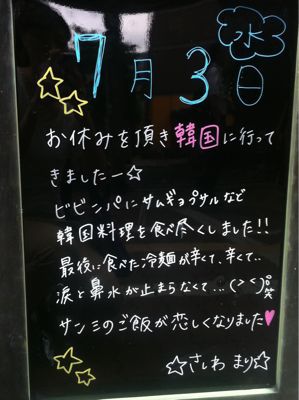 水
7月3日
お休みを頂き韓国に行って
きましたー☆
ビビンパにサムギョプサルなど
韓国料理を食べ尽くしました!!
最後に食べた冷麺が辛くて、辛くて..
涙と鼻水が止まらなくて...(>_<)笑
サンミのご飯が恋しくなりました♥
☆さしわ まり☆